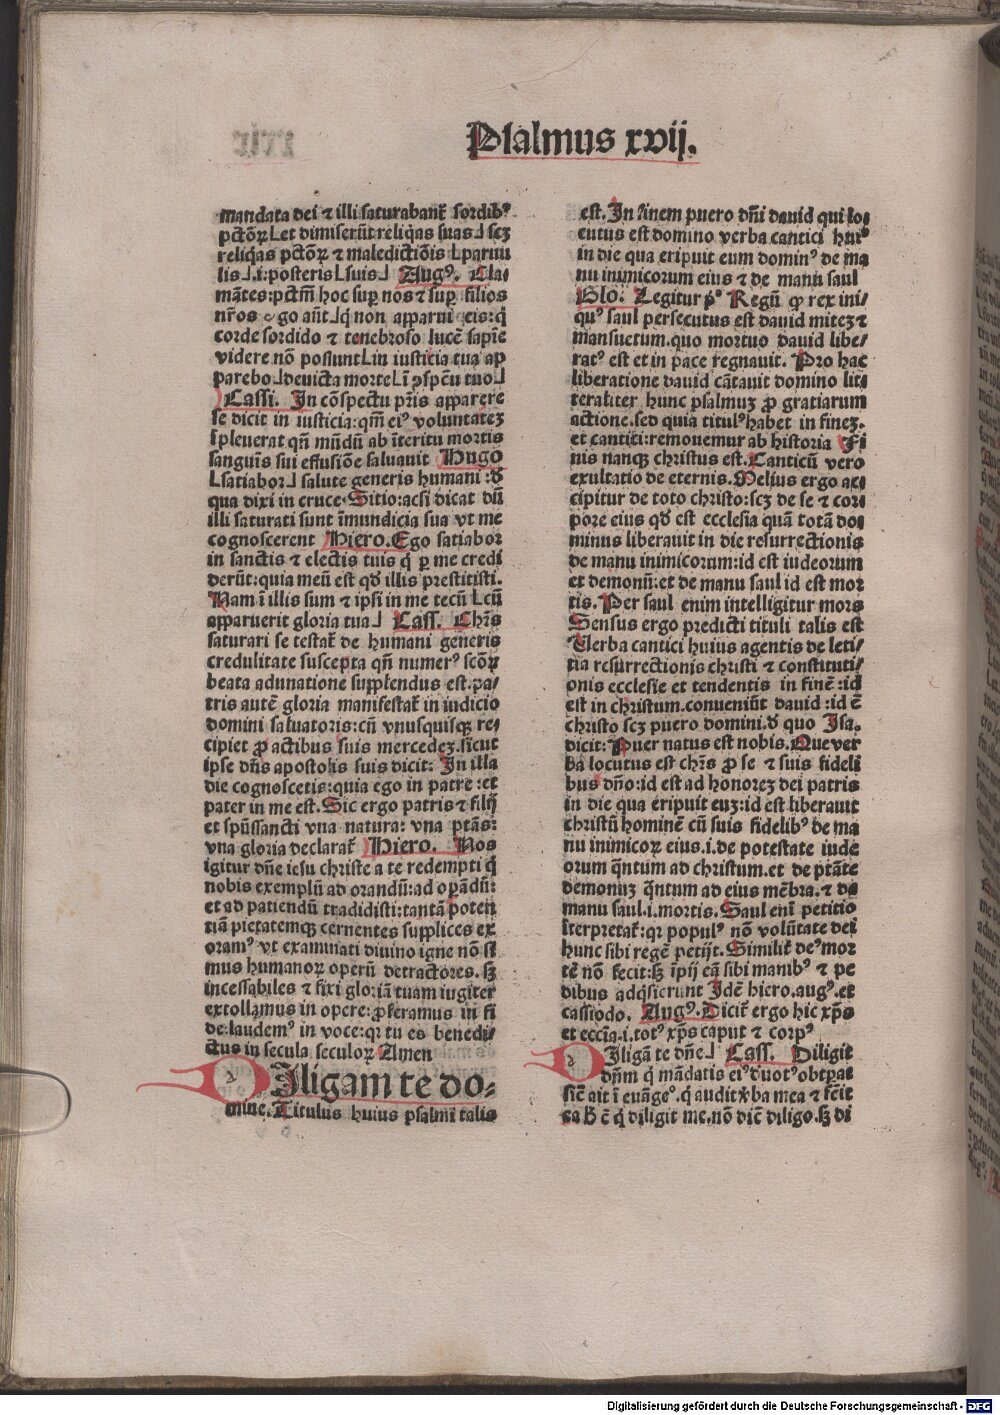 Psalmus xvij.
mandata dei ⁊ illi saturabant̃ sordibꝰ
pctõꝝ⅃et dimiserũt reliq̃as suas⅃scꝫ
reliq̃as pctõꝝ ⁊ maledictiõis⅃paruu
lis⅃.i:posteris⅃suis⅃ Augꝰ. Cla-
mãtes:pctm̃ hoc suꝑ nos ⁊ suꝑ filios
nr̃os ego aũt⅃q̃ non apparui eis:q̃
corde sordido ⁊ tenebroso lucẽ sapiẽ
videre nõ possunt⅃in iusticia tua ap
parebo⅃deuicta morte⅃ĩ ꝯspcũ tuo⅃
Cassi. In cõspectu pr̃is apparere
se dicit in iusticia:qm̃ eiꝰ voluntateꝫ
ĩpleuerat qñ mũdũ ab ĩteritu mortis
sanguĩs sui effusiõe saluauit Hugo
⅃satiabor⅃ salute generis humani :ð
qua dixi in cruce·Sitio:acsi dicat dũ
illi saturati sunt ĩmundicia sua vt me
cognoscerent Hiero.Ego satiabor
in sanctis ⁊ electis tuis q̃ ꝑ me credi
derũt:quia meũ est qð illis prestitisti.
Nam ĩ illis sum ⁊ ipsi in me tecũ ⅃cũ
apparuerit gloria tua⅃ Cass. Chr̃s
saturari se testat̃ de humani generis
credulitate suscepta qñ numerꝰ scõꝝ
beata adunatione supplendus est.pa/
tris autẽ gloria manifestat̃ in iudicio
domini saluatoris:cũ vnusquisqꝫ re-
cipiet ꝓ actibus suis mercedeꝫ.sicut
ipse dñs apostolis suis dicit: In illa
die cognoscetis:quia ego in patre :et
pater in me est. Sic ergo patris ⁊ filij
et spũssancti vna natura: vna ptãs:
vna gloria declarat̃ Hiero. Nos
igitur dñe iesu christe a te redempti q̃
nobis exemplũ ad orandũ:ad oꝑandũ:
et ad patiendũ tradidisti:tantã poten
tiã pietatemqꝫ cernentes supplices ex
oramꝰ vt examinati diuino igne nõ si
mus humanoꝝ operũ detractores.sꝫ
incessabiles ⁊ fixi gloriã tuam iugiter
extollamus in opere:ꝓferamus in fi
de:laudemꝰ in voce:qꝛ tu es benedi/
ctus in secula seculoꝝ Amen
DIligam te do-
mine.Titulus huius psalmi talis
est. In finem puero dñi dauid qui lo
cutus est domino verba cantici huiꝰ
in die qua eripuit eum dominꝰ de ma
nu inimicorum eius ⁊ de manu saul
Glo. Legitur pꝰ Regũ ꝙ rex ini/
quꝰ saul persecutus est dauid miteꝫ ⁊
mansuetum.quo mortuo dauid libe/
ratꝰ est et in pace regnauit. Pro hac
liberatione dauid cãtauit domino lit
teraliter hunc psalmuꝫ ꝓ gratiarum
actione.sed quia titulꝰhabet in fineꝫ.
et cantici:remouemur ab historia Fi
nis nanqꝫ christus est.Canticũ vero
exultatio de eternis.Melius ergo ac
cipitur de toto christo:scꝫ de se ⁊ cor
pore eius qð est ecclesia quã totã do
minus liberauit in die resurrectionis
de manu inimicorum:id est iudeorum
et demonũ:et de manu saul id est mor
tis. Per saul enim intelligitur mors
Sensus ergo predicti tituli talis est
Uerba cantici huius agentis de leti-
tia resurrectionis christi ⁊ constituti-
onis ecclesie et tendentis in finẽ :id
est in christum.conueniũt dauid :id ẽ
christo scꝫ puero domini.ð quo Isa.
dicit: Puer natus est nobis. Que ver
ba locutus est chr̃s ꝓ se ⁊ suis fideli
bus dño:id est ad honoreꝫ dei patris
in die qua eripuit euꝫ:id est liberauit
christũ hominẽ cũ suis fidelibꝰ de ma
nu inimicoꝝ eius.i.de potestate iude
orum q̃ntum ad christum.et de ptãte
demonuꝫ q̃ntum ad eius mẽbra.⁊ de
manu saul.i.mortis. Saul eni petitio
ĩterpretat̃:qꝛ populꝰ nõ volũtate dei
hunc sibi regẽ petijt. Similit̃ deꝰ mor
tẽ nõ fecit:sꝫ ĩpij eã sibi manibꝰ ⁊ pe
dibus adq̃sierunt Idẽ hiero.augꝰ.et
cassiodo. Augꝰ.Dicit̃ ergo hic xp̃s
et ecclia.i.totꝰ xp̃s caput ⁊ corpꝰ
DIligã te dñe⅃ Cass. Diligit
dñm q̃ mãdatis eiꝰ ðuotꝰ obtꝑat
sic̃ ait ĩ euãgeꝰ.q̃ audit v̾ba mea ⁊ fecit
ea h̃ ẽ q̃ diligit me.nõ dic̃ diligo.sꝫ di
Digitalisierung gefördert durch die Deutsche Forschungsgemeinschaft - DFG